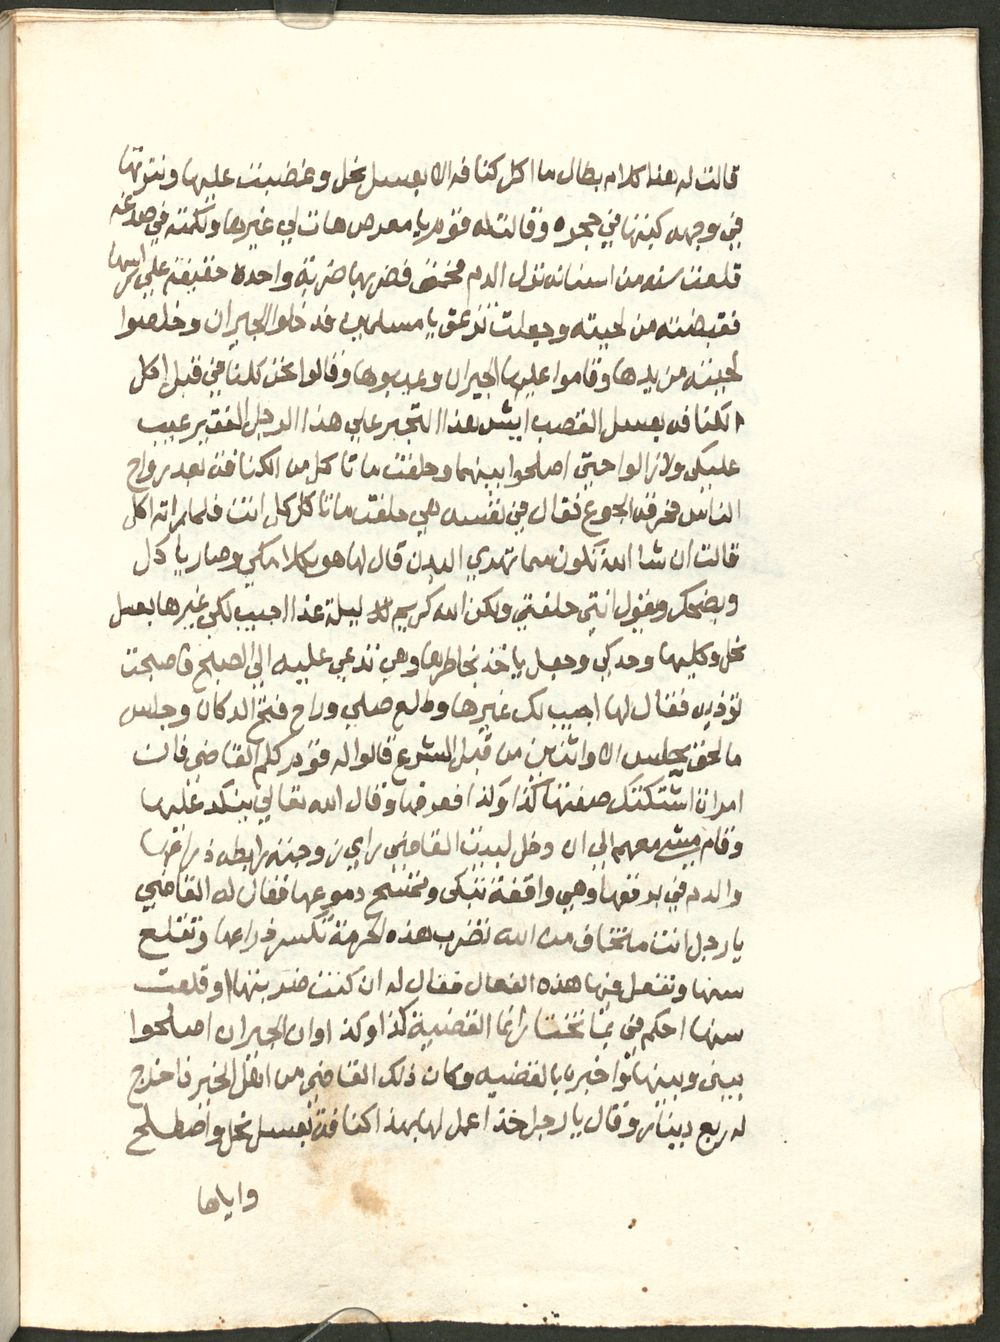 قالت له هذا كلام بطال ما اكل كنافه الا بعسل نحل وغضبت عليها ونترتها
في وجهه كبتها في حجره وقالت له قوم يا معرص هات لي غيرها ولكمته في صدغه
قلعت سنه من اسنانه نزل الدم فضربها ضربة واحده خفيفة علي راسها
فقبضته من لحيته وجعلت تزعق يا مسلمين فدخلوا الجيران وخلصوا
لحيته من يدها وقاموا عليها الجيران وعيبوها وقالوا نحن كلنا في قبل اكل
الكنافه بعسل القصب ايش هذا التجبر علي هذا الرجل الفقير عيب
عليكي ولا زالوا حتي اصلحوا بينهما وحلفت ما تاكل من الكنافة بعد رواح
الناس فحرقه الجوع فقال في نفسه هي حلفت ما تاكل كل انت فلما راته اكل
قالت ان شا الله تكون سما تهدي البدن قال لها هو بكلامكي وصار ياكل
ويضحك ويقول انتي حلفتي ولكن الله كريم ليلة غدا اجيب لكي غيرها بعسل
نحل وكليها وحدكي وجعل ياخذ بخاطرها وهي تدعي عليه الي الصبح فاصبحت
توذيه فقال لها اجيب لك غيرها وطلع صلي وراح فتح الدكان وجلس
ما لحق يجلس الا واثنين من قبل الشرع قالوا له قوم كلم القاضي فان
امراتك اشتكتك صفتها كذا وكذا فعرفها وقال الله تعالي ينكد عليها
وقام مشي معهم الي ان دخل لبيت القاضي راي زوجته رابطه ذراعها
والدم في برقعها وهي واقفة تبكي وتمسح دموعها فقال له القاضي
يا رجل انت ما تخاف من الله تضرب هذه الحرمة تكسر ذراعها وتقلع
سنها وتفعل فيها هذه الفعال فقال له ان كنت ضربتها او قلعت
سنها احكم في بما تختار انما القضية كذا وكذا وان الجيران اصلحوا
بيني وبينها واخبره بالقضيه وكان ذلك القاضي من اهل الخير فاخرج
له ربع دينار وقال يا رجل خذ اعمل لها بهذا كنافة بعسل نحل واصطلح
واياها